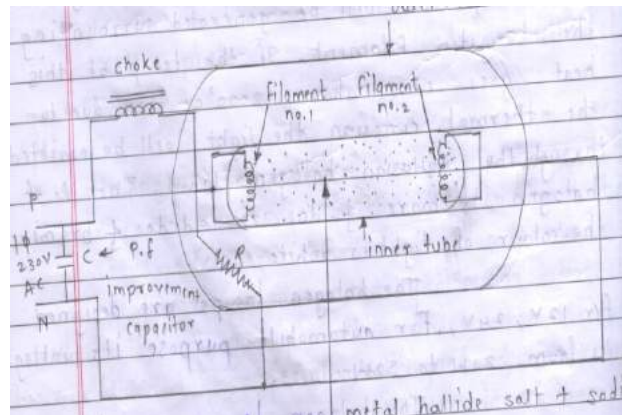 choke
Filament
no.1
Filament
no.2
P
1φ
230V
AC
C ← P.f
improvement
capacitor
N
R
inner tube
metal hallide salt + sodi